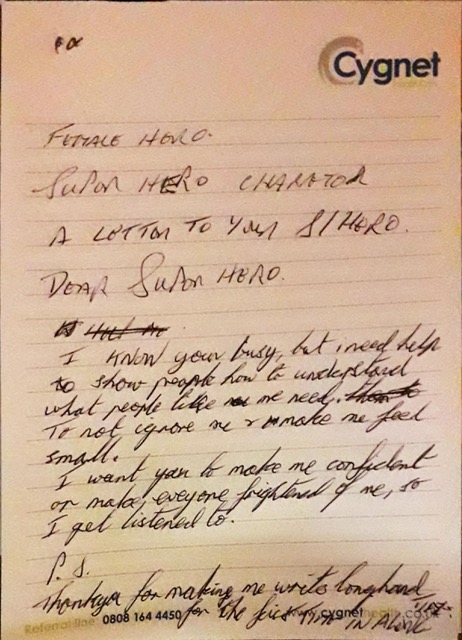 Cygnet
HEALTH CARE
FEMALE HERO.
SUPOR HERO CHARATOR
A LETTOR TO YOUR S/HERO.
DEAR SUPOR HERO.
I KNOW your busy, but i need help
to show people how to understand
what people like me need.
To not ignore me & make me feel
small.
I want you to make me confident
or make eveyone frightened of me, so
I get listened to.
P.S.
Thankyou for making me write longhand
for the first time IN A
Referral line 0808 164 4450 www.cygnethealth.co.uk